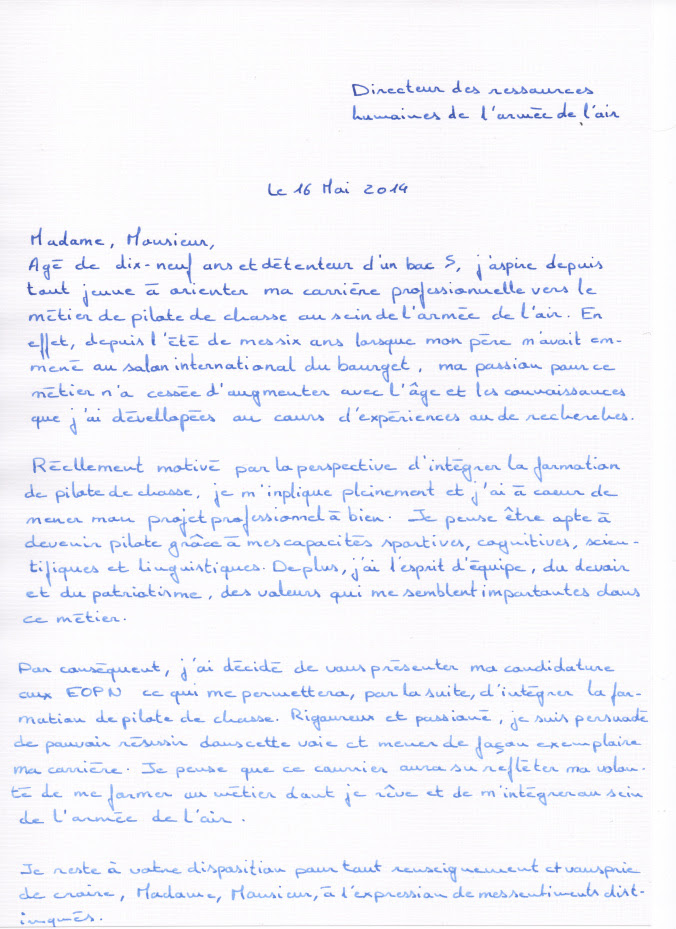 Directeur des ressources
humaines de l'armée de l'air
Le 16 Mai 2014
Madame, Monsieur,
Agé de dix-neuf ans et détenteur d'un bac S, j'aspire depuis
tout jeune à orienter ma carrière professionnelle vers le
métier de pilote de chasse au sein de l'armée de l'air. En
effet, depuis l'été de mes six ans lorsque mon père m'avait em-
mené au salon international du bourget, ma passion pour ce
métier n'a cessée d'augmenter avec l'âge et les connaissances
que j'ai dévellopées au cours d'expériences ou de recherches.
Réellement motivé par la perspective d'intégrer la formation
de pilote de chasse, je m'inplique pleinement et j'ai à coeur de
mener mon projet professionnel à bien. Je pense être apte à
devenir pilote grâce à mes capacités sportives, cognitives, scien-
tifiques et linguistiques. De plus, j'ai l'esprit d'équipe, du devoir
et du patriotisme, des valeurs qui me semblent importantes dans
ce métier.
Par conséquent, j'ai décidé de vous présenter ma candidature
aux EOPN ce qui me permettera, par la suite, d'intégrer la for-
mation de pilote de chasse. Rigoureux et passioné, je suis persuadé
de pouvoir réussir dans cette voie et mener de façon exemplaire
ma carrière. Je pense que ce courrier aura su refléter ma volon-
té de me former au métier dont je rêve et de m'intégrer au sein
de l'armée de l'air.
Je reste à votre disposition pour tout renseignement et vous prie
de croire, Madame, Monsieur, à l'expression de mes sentiments dist-
ingués.